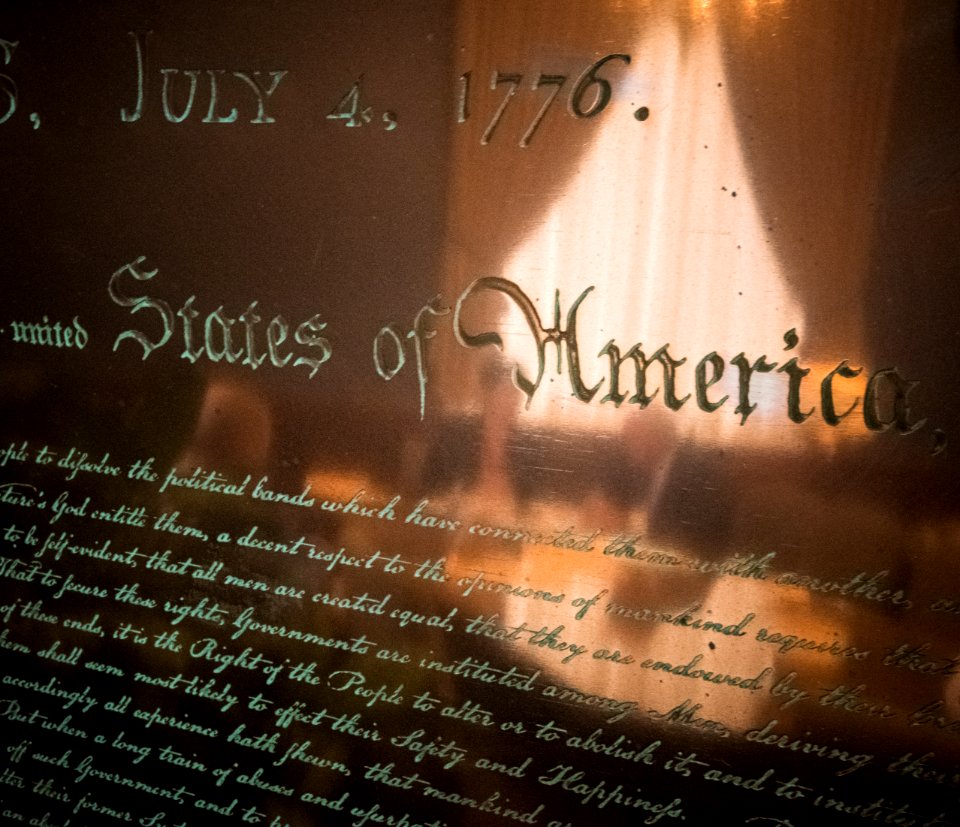 S, JULY 4, 1776.
united States of America,
ople to dissolve the political bands which have connected them with another, a
ture's God entitle them, a decent respect to the opinions of mankind requires that
to be self-evident, that all men are created equal, that they are endowed by their
That to secure these rights, Governments are instituted among Men, deriving their
of these ends, it is the Right of the People to alter or to abolish it, and to institute
hem shall seem most likely to effect their Safety and Happiness.
accordingly all experience hath shewn, that mankind
But when a long train of abuses and usurpati
off such Government, and to
lter their former
an